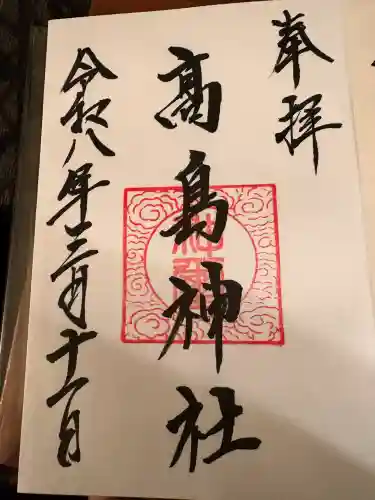 奉拝
髙島神社
令和八年三月十一日